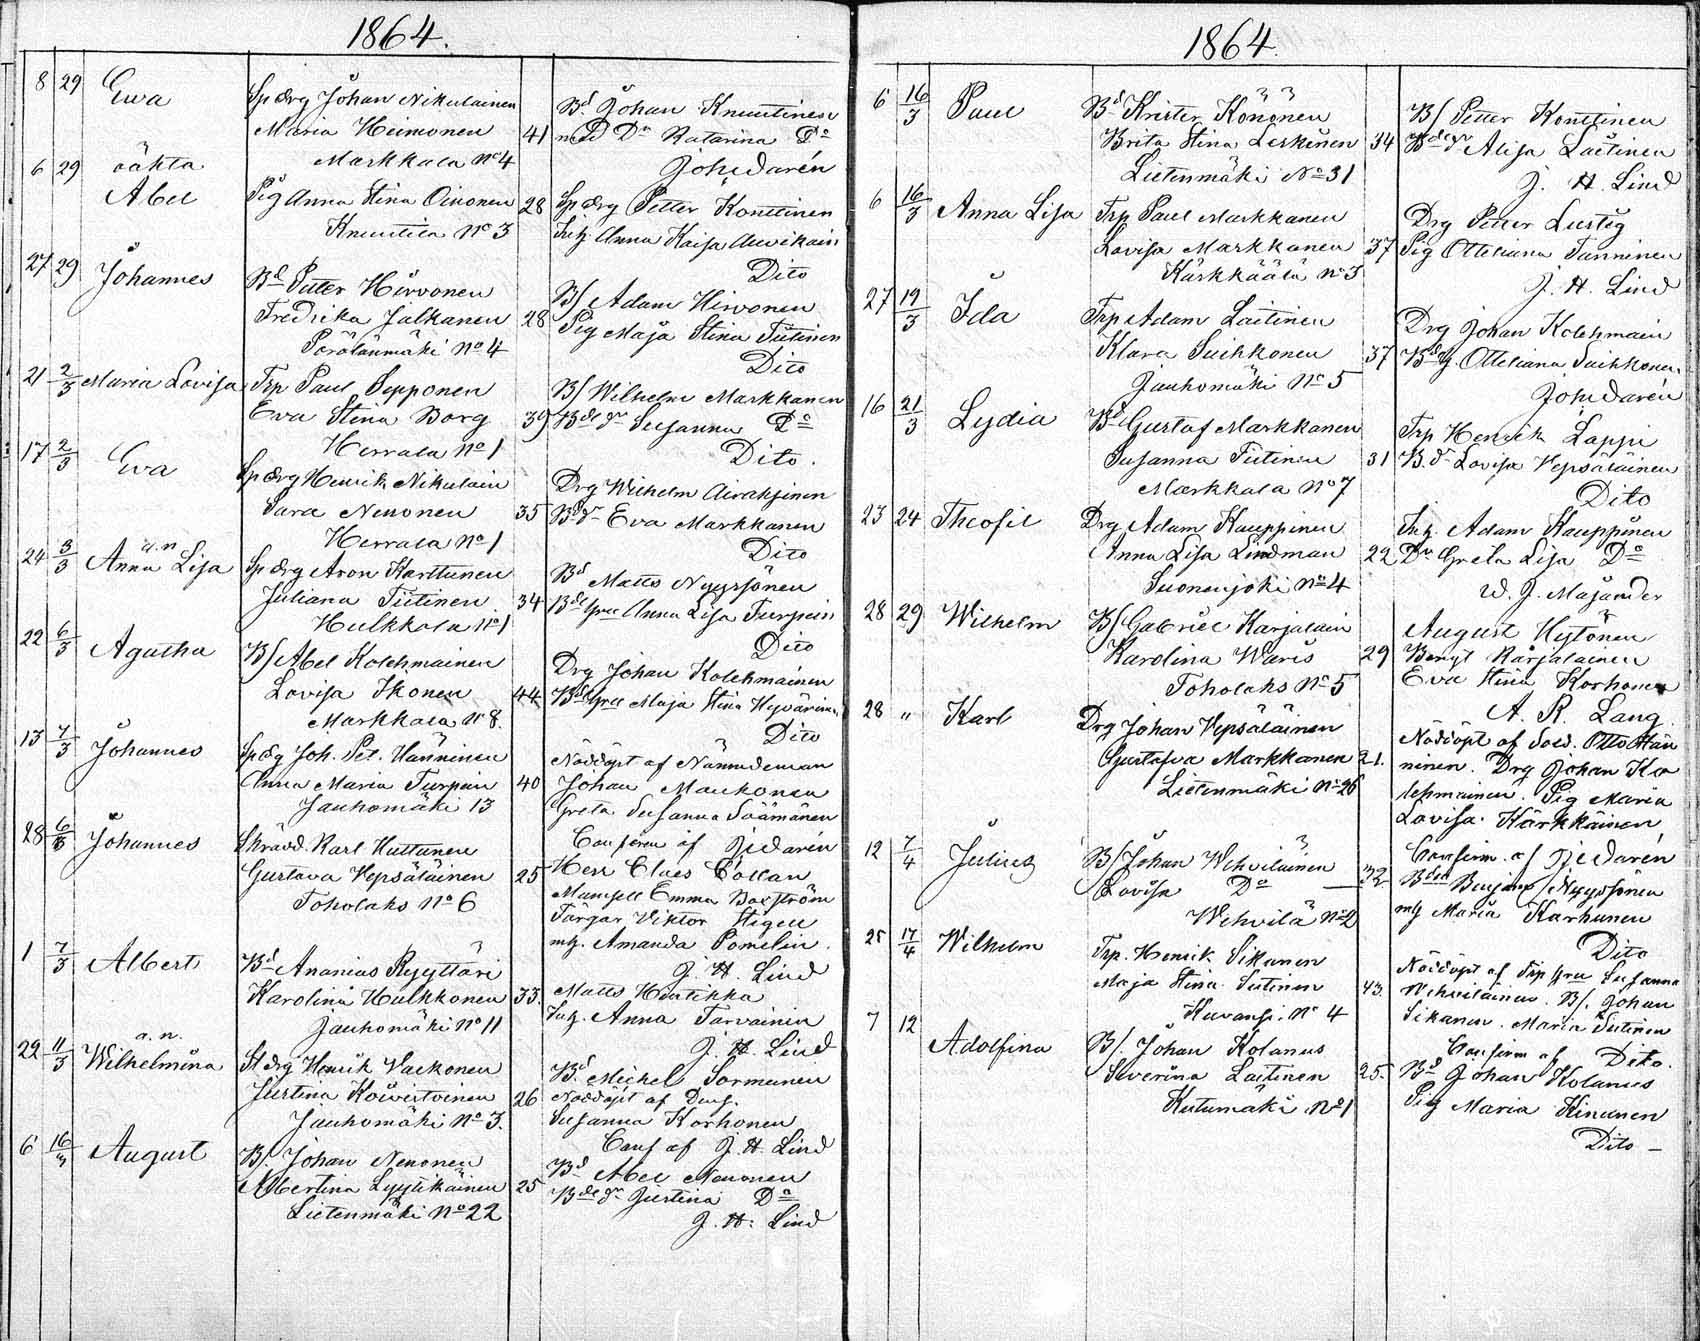 1864.
8 29 Ewa Sp drg Johan Nikulainen
Maria Heimonen 41
Markkala No 4
Bd. Johan Knuutinen
med Do Katarina Do
Joh: Darén
6 29 oäkta
Abel Pig Anna Stina Oinonen 28
Knuutila No 3
Sp drg Petter Konttinen
Inh. Anna Kaisa Auvikain
Dito
27 29 Johannes Bd Petter Hirvonen
Fredrika Jalkanen 28
Pörölänmäki No 4
B/ Adam Hirvonen
Pig Maja Stina Tiitinen
Dito
21 2/3 Maria Lovisa Trp Paul Sepponen
Eva Stina Borg 39
Herrala No 1
B/ Wilhelm Markkanen
Bde dr Susanna Do
Dito.
17 2/3 Ewa Sp drg Henrik Nikulain
Sara Nenonen 35
Herrala No 1
Drg Wilhelm Airaksinen
Bd dr Eva Markkanen
Dito
24 3/3 a.n
Anna Lisa Sp drg Aron Karttunen
Juliana Tiitinen 34
Hulkkola No 1
Bd Matts Nyyssönen
Bde hru Anna Lisa Turpein
Dito
22 6/3 Agatha B/ Abel Kolehmainen
Lovisa Ikonen 44
Markkala No 8.
Drg Johan Kolehmainen
Bde hru Maja Stina Hyvärinen
Dito
13 7/3 Johannes Sp drg Joh. Pet. Hänninen
Anna Maria Turpein 40
Jauhomäki 13
Nöddöpt af Nämndeman
Johan Maukonen
Greta Susanna Säämänen
Confirm af J: Darén
28 6/3 Johannes Skrädd. Karl Huttunen
Gustava Vepsäläinen 25
Toholaks No 6
Herr Claes Collan
Mamsell Emma Boxström
Färgar Viktor Stigell
mlg. Amanda Pomelin.
J. H. Lind
1 7/3 Albert Bd Ananias Ryyttäri
Karolina Hulkkonen 33.
Jauhomäki No 11
Matts Huttikka
Inh. Anna Tarvainen
J. H. Lind
22 11/3 a.n.
Wilhelmina St drg Henrik Vaikonen
Justina Koivistoinen 26
Jauhomäki No 3.
B. Michel Sormunen
Nöddöpt af Dens.
Susanna Korhonen
Conf af J. H. Lind
6 16/3 August B. Johan Nenonen
Albertina Lyytikäinen 25
Lietenmäki No 22
Bd Abel Nenonen
Bde dr Justina Do
J. H. Lind
1864.
6 16/3 Paul Bd Krister Könönen
Brita Stina Leskinen 34
Lietenmäki No 31
B/ Petter Konttinen
Bde dr Alisa Laitinen
J. H. Lind
6 16/3 Anna Lisa Trp Paul Markkanen
Lovisa Markkanen 37
Kärkkäälä No 5
Drg Petter Lustig
Pig Otteliana Tanninen
J. H. Lind
27 19/3 Ida Trp Adam Laitinen
Klara Suihkonen 37
Jauhomäki No 5
Drg Johan Kolehmain
Bde dr. Otteliana Suihkonen
Joh: Darén
16 21/3 Lydia Bd Gustaf Markkanen
Susanna Tiitinen 31
Markkala No 7
Trp Henrik Lappi
B. dr Lovisa Vepsäläinen
Dito
23 24 Theofil Drg Adam Kauppinen
Anna Lisa Lindman 22
Suonenjoki No 4
Inh. Adam Kauppinen
Do Greta Lisa Do
W. J. Majander
28 29 Wilhelm B/ Gabriel Karjalain
Karolina Waris 29
Toholaks No 5
August Hytönen
Bengt Karjalainen
Eva Stina Korhonen
A. R. Lang
28 " Karl Drg Johan Vepsäläinen
Gustafva Markkanen 21.
Lietenmäki No 26
Nöddöpt af Sold. Otto Hän
ninen. Drg Johan Ko
lehmainen. Pig Maria
Lovisa Kärkkäinen
Confirm. af J: Darén
12 7/4 Julius B/ Johan Wehviläinen
Lovisa Do 32
Wehvilä No 2
Bden Benjam Nyyssönen
mlg Maria Karhunen
Dito
25 17/4 Wilhelm Trp. Henrik Sikanen
Maja Stina Tiitinen 43.
Kuvansi No 4
Nöddöpt af Trp hru Susanna
Wehviläinen. B/. Johan
Sikanen. Maria Tiitinen
Confirm af Dito.
7 12 Adolfina B/. Johan Kolanus
Severina Laitinen 25.
Kutumäki No 1
Bd Johan Kolanus
Pig Maria Kinnunen
Dito –